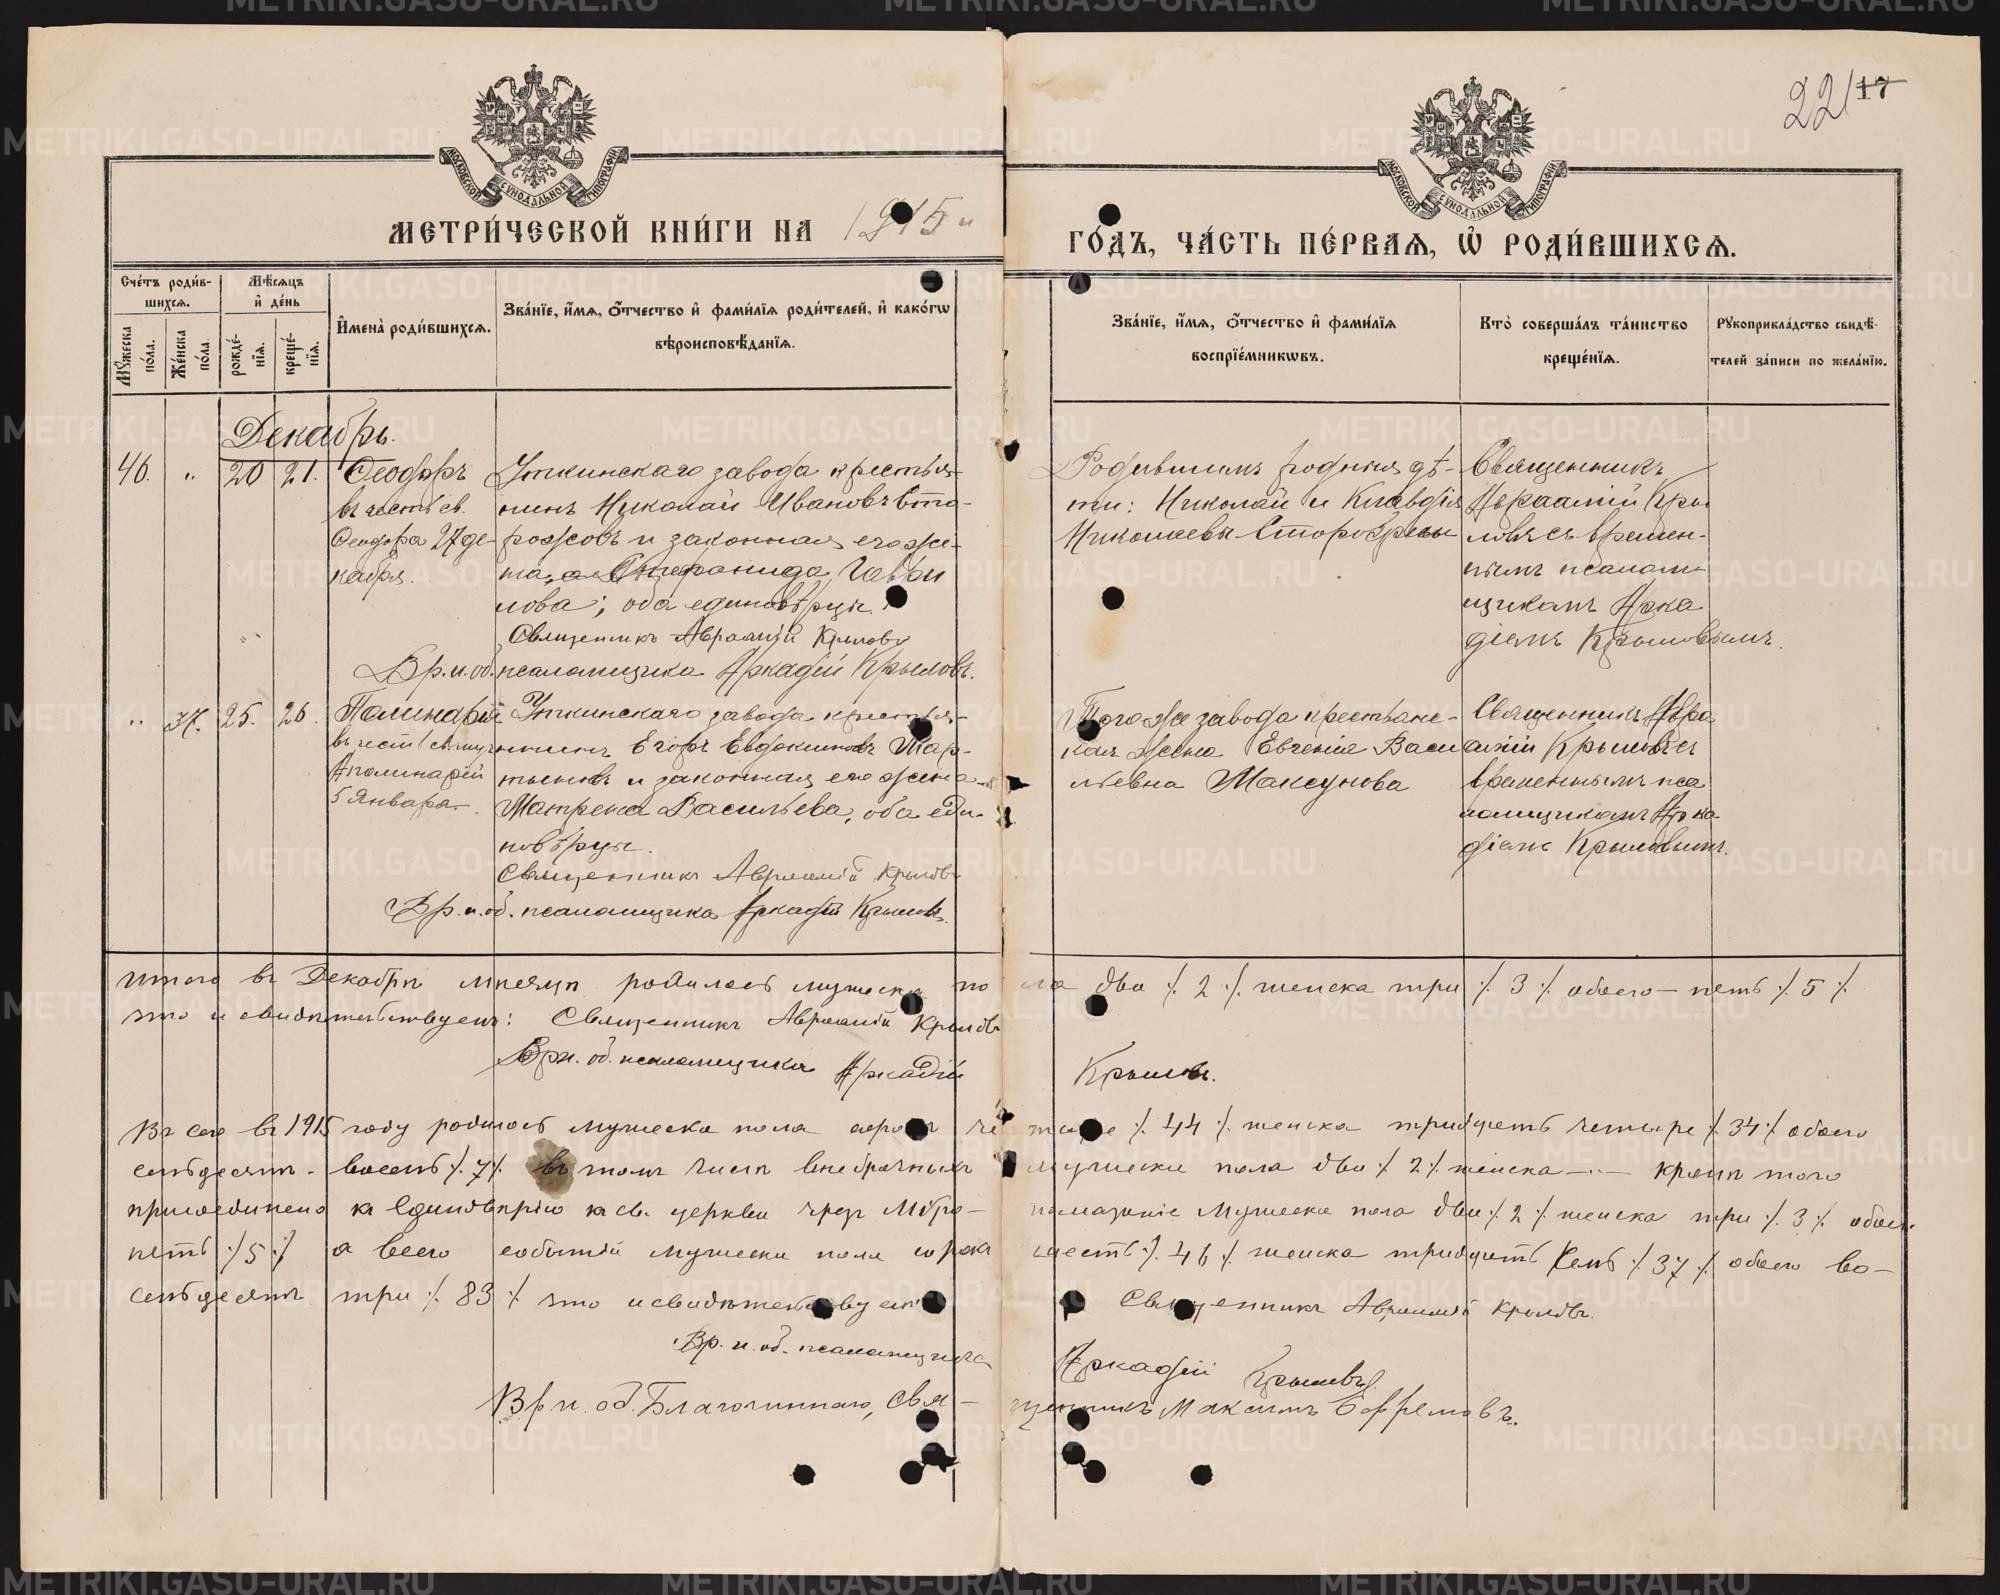 22 17
МОСКОВСКОЙ СѴНОДАЛЬНОЙ ТИПОГРАФІИ
МОСКОВСКОЙ СѴНОДАЛЬНОЙ ТИПОГРАФІИ
МЕТРИ́ЧЕСКОЙ КНИ́ГИ НА 1915 й
ГО́ДЪ, ЧА́СТЬ ПЕ́РВАѦ, Ѡ҆ РОДИ́ВШИХСѦ.
Сче́тъ роди́в-
шихсѧ.
Мꙋ́жеска по́ла.
Же́нска по́ла.
Мѣ́сѧцъ
и҆ де́нь
рожде́-
нїѧ.
креще́-
нїѧ.
И҆мена̀ роди́вшихсѧ.
Зва́нїе, и҆́мѧ, ѻ҆́тчество и҆ фами́лїѧ роди́телей, и҆ како́гѡ
вѣроисповѣ́данїѧ.
Зва́нїе, и҆́мѧ, ѻ҆́тчество и҆ фами́лїѧ
воспрїе́мникѡвъ.
Кто̀ соверша́лъ та́инство
креще́нїѧ.
Рꙋкоприкла́дство свидѣ́-
телей за́писи по жела́нїю.
Декабрь.
46. " 20 21.
Ѳеодоръ
въ честь св.
Ѳеодора 27 де-
кабря.
Уткинскаго завода крестья-
нинъ Николай Ивановъ Сто-
рожовъ и законная его же-
на, Гаври
лова; оба единовѣрцы.
Священникъ Авраамій Крыловъ
Вр. и. об. псаломщика Аркадій Крыловъ.
Родившимъ родныя дѣ-
ти: Николай и Клавдія
Николаевы
Священникъ
Авраамій Кры
ловъ съ времен-
нымъ псалом-
щикомъ Арка
діемъ Крыловымъ.
" 37. 25. 26.
Полинарія
въ честь
Аполинаріи
5 Января.
Уткинскаго завода крестья-
нинъ Егоръ Евдокимовъ Мар-
тьяновъ и законная его жена
Матрена Васильева, оба еди-
новѣрцы.
Священникъ Авраамій Крыловъ
Вр. и. об. псаломщика Аркадій Крыловъ.
Того же завода крестьянс-
кая жена Евгенія Васи
льевна Максунова
Священникъ Авра
амій Крыловъ съ
временнымъ пса
ломщикомъ Арка
діемъ Крыловымъ.
Итого въ Декабрѣ мѣсяцѣ родилось мужеска по ла два ٪ 2 ٪ женска три ٪ 3 ٪ обоего — пять ٪ 5 ٪
что и свидѣтельствуемъ: Священникъ Авраамій Крыловъ
Вр. и. об. псаломщика Аркадій Крыловъ.
Въ сего въ 1915 году родилось мужеска пола сорокъ че тыре ٪ 44 ٪ женска тридцать четыре ٪ 34 ٪ обоего
семьдесятъ восемь ٪ 7 ٪ въ томъ числѣ внебрачныхъ мужеска пола два ٪ 2 ٪ женска — " — кромѣ того
присоединено къ Единовѣрію къ св. церкви чрезъ Мѵро- помазаніе мужеска пола два ٪ 2 ٪ женска три ٪ 3 ٪ обоего
пять ٪ 5 ٪ а всего событій мужеска пола сорокъ шесть ٪ 46 ٪ женска тридцать семь ٪ 37 ٪ обоего во-
семьдесятъ три ٪ 83 ٪ что и свидѣтельствуемъ Священникъ Авраамій Крыловъ.
Вр. и. об. псаломщика Аркадій Крыловъ.
Вр. и. об. Благочиннаго, Свя- щенникъ Максимъ Ефремовъ.
METRIKI.GASO-URAL.RU